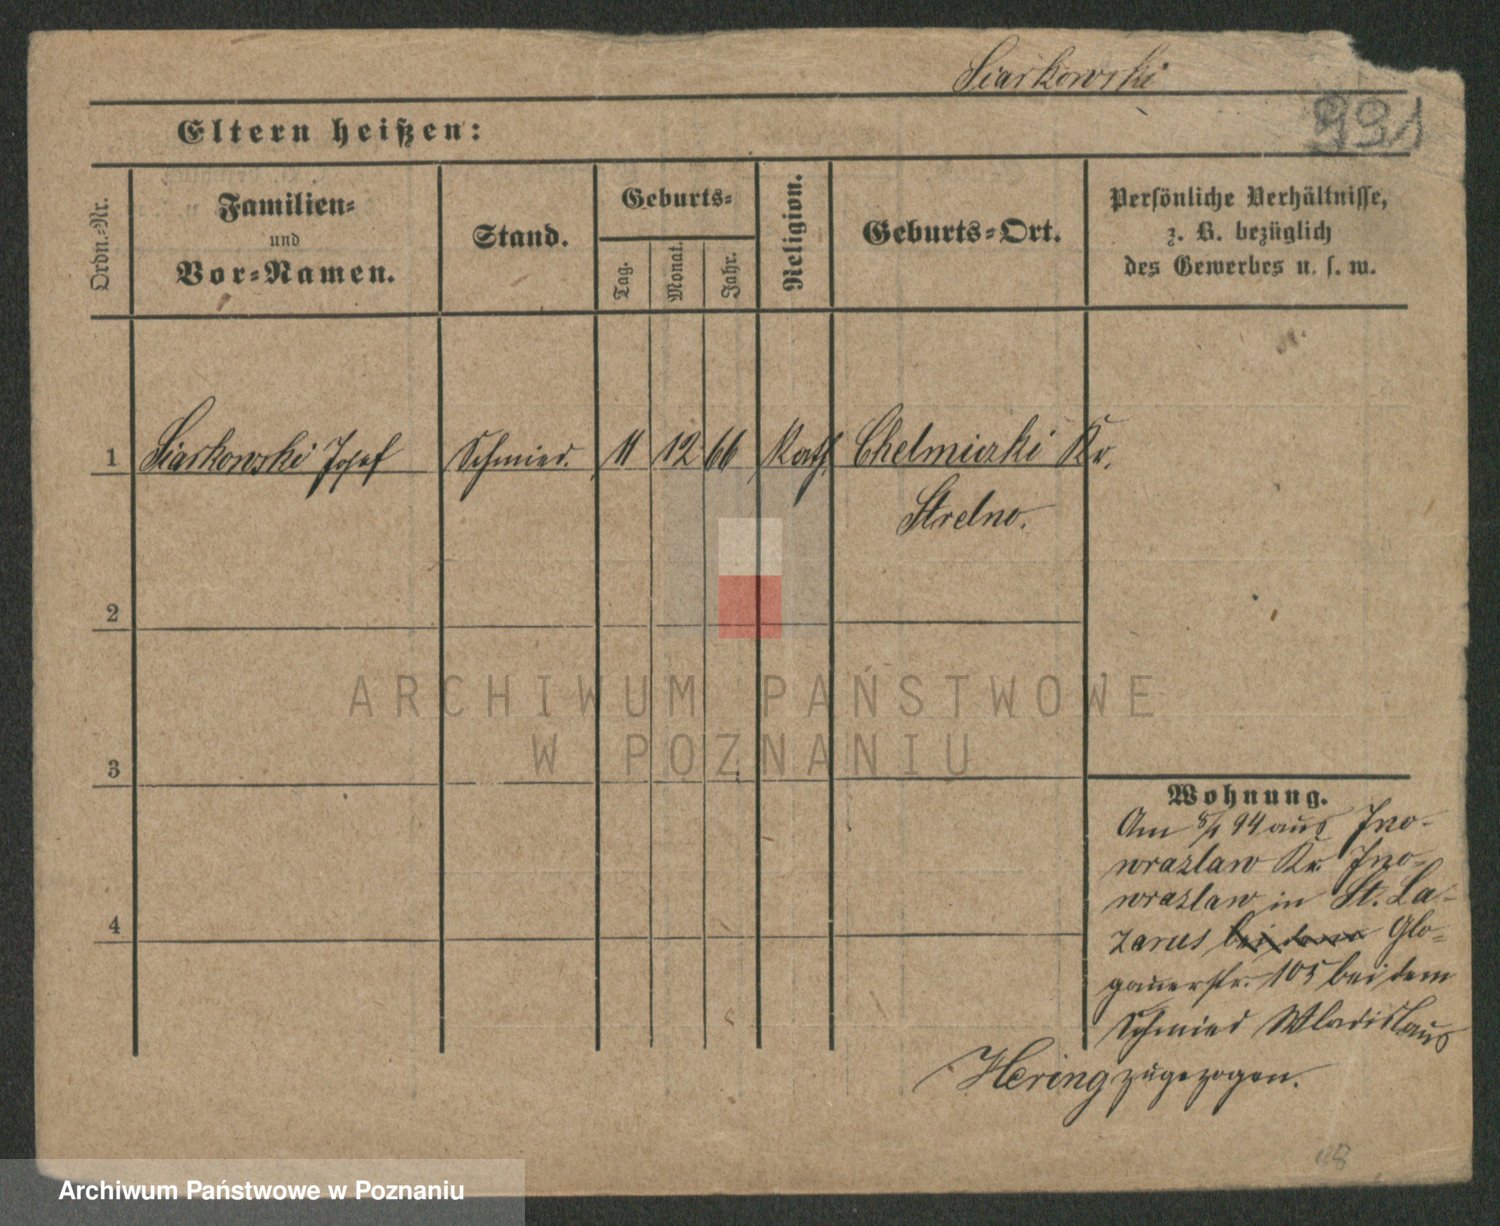 Siarkowski
991
Eltern heißen:
Ordn.-Nr.
Familien-
und
Vor-Namen.
Stand.
Geburts-
Tag.
Monat.
Jahr.
Religion.
Geburts-Ort.
Persönliche Verhältnisse,
z. B. bezüglich
des Gewerbes u. s. w.
1 Siarkowski Josef Schmied. 11 12 66 Kath. Chelmiczki Kr.
Strelno.
2
3
4
Wohnung.
Am 8/1 94 aus Ino-
wrazlaw Kr. Ino-
wrazlaw in St. La-
zarus bei dem Glo-
gauerstr. 105 bei dem
Schmied Wladislaus
Hering zugezogen.
ARCHIWUM PAŃSTWOWE
W POZNANIU
Archiwum Państwowe w Poznaniu